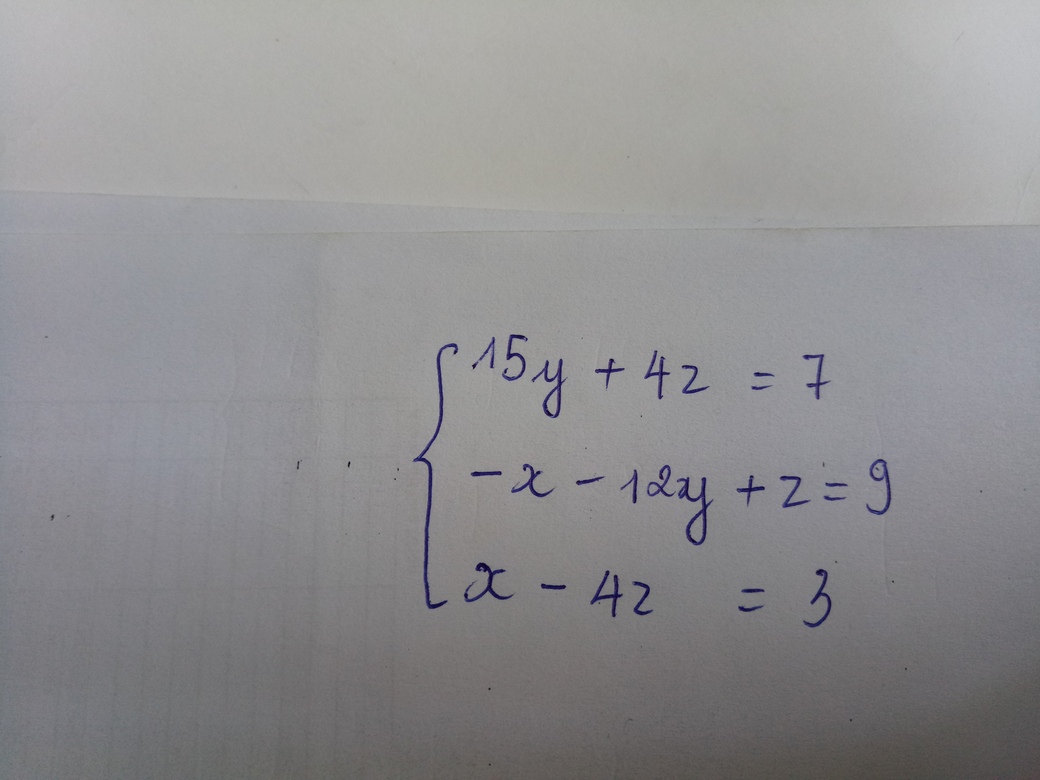 15y + 4z = 7
-x - 12y + z = 9
x - 4z = 3